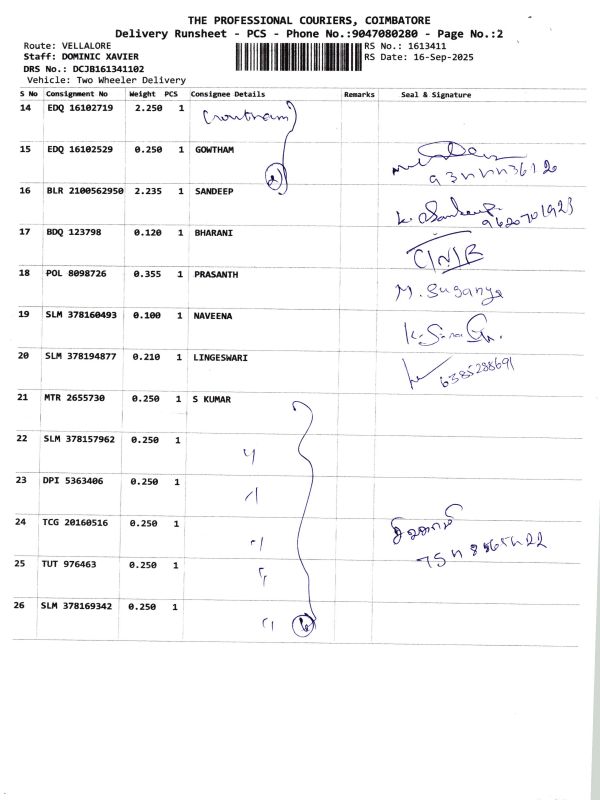 THE PROFESSIONAL COURIERS, COIMBATORE
Delivery Runsheet - PCS - Phone No.:9047080280 - Page No.:2
Route: VELLALORE
Staff: DOMINIC XAVIER
DRS No.: DCJB161341102
Vehicle: Two Wheeler Delivery
RS No.: 1613411
RS Date: 16-Sep-2025
S No Consignment No Weight PCS Consignee Details Remarks Seal & Signature
14 EDQ 16102719 2.250 1 Gowtham
15 EDQ 16102529 0.250 1 GOWTHAM
16 BLR 2100562950 2.235 1 SANDEEP
17 BDQ 123798 0.120 1 BHARANI
18 POL 8098726 0.355 1 PRASANTH M. Suganya
19 SLM 378160493 0.100 1 NAVEENA
20 SLM 378194877 0.210 1 LINGESWARI 6385288691
21 MTR 2655730 0.250 1 S KUMAR
22 SLM 378157962 0.250 1
23 DPI 5363406 0.250 1
24 TCG 20160516 0.250 1
25 TUT 976463 0.250 1
26 SLM 378169342 0.250 1